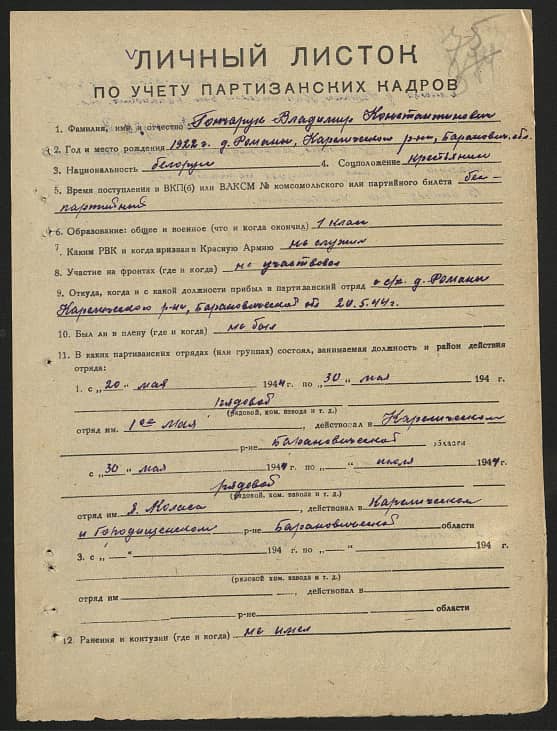 ЛИЧНЫЙ ЛИСТОК
ПО УЧЕТУ ПАРТИЗАНСКИХ КАДРОВ
1. Фамилия, имя и отчество Гончарук Владимир Константинович
2. Год и место рождения 1922 г. д. Романы, Кареличского р-на, Баранович. обл.
3. Национальность белорус 4. Соцположение крестьянин
5. Время поступления в ВКП(б) или ВЛКСМ № комсомольского или партийного билета бес-
партийный
6. Образование: общее и военное (что и когда окончил) 1 клас
7. Каким РВК и когда призван в Красную Армию не служил
8. Участие на фронтах (где и когда) не участвовал
9. Откуда, когда и с какой должности прибыл в партизанский отряд с/х. д. Романы
Кареличского р-на, Барановической об 20.5.44 г.
10. Был ли в плену (где и когда) не был
11. В каких партизанских отрядах (или группах) состоял, занимаемая должность и район действия
отряда:
1. с „20" мая 1944 г. по „30" мая 194 г.
рядовой
(рядовой, ком. взвода и т. д.)
отряд им. 1ое Мая, действовал в Кареличском
р-не Барановической области
с „30" мая 1944 г. по „ " июля 1944 г.
рядовой
(рядовой, ком. взвода и т. д.)
отряд им Я. Коласа, действовал в Кареличском
и Городищенском р-не Барановической области
3. с „ " 194 г. по „ " 194 г.
(рядовой ком. взвода и т. д.)
отряд им , действовал в
р-не области
12. Ранения и контузии (где и когда) не имел